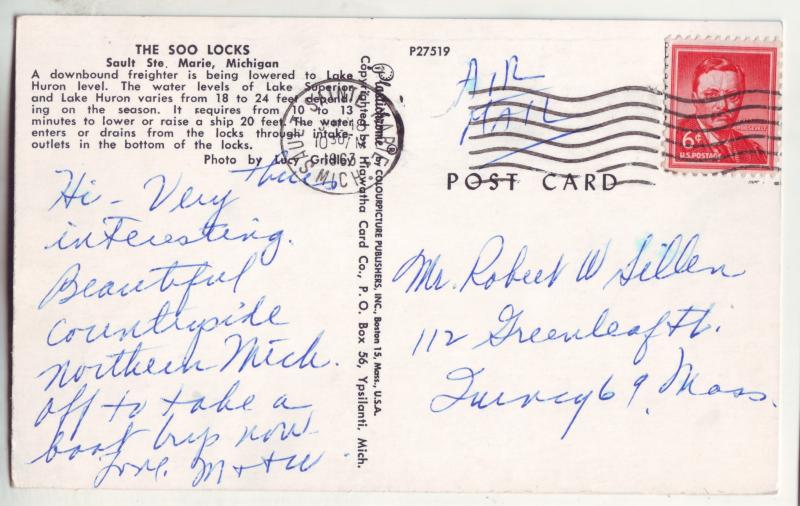 THE SOO LOCKS
Sault Ste. Marie, Michigan
A downbound freighter is being lowered to Lake
Huron level. The water levels of Lake Superior
and Lake Huron varies from 18 to 24 feet depend-
ing on the season. It requires from 10 to 13
minutes to lower or raise a ship 20 feet. The water
enters or drains from the locks through intake-
outlets in the bottom of the locks.
Photo by Lucy
Hi - Very
interesting.
Beautiful
countryside
northern Mich.
off to take a
boat trip now
Love. M + W
SAULT STE
1963
MICH.
Plastichrome ® by COLOURPICTURE PUBLISHERS, INC., Boston 15, Mass., U.S.A.
Copyrighted by Hiawatha Card Co., P. O. Box 56, Ypsilanti, Mich.
P27519
AIR
MAIL
6¢
U.S. POSTAGE
POST CARD
Mr. Robert W Sillen
112 Greenleaf St.
Quincy 69, Mass.